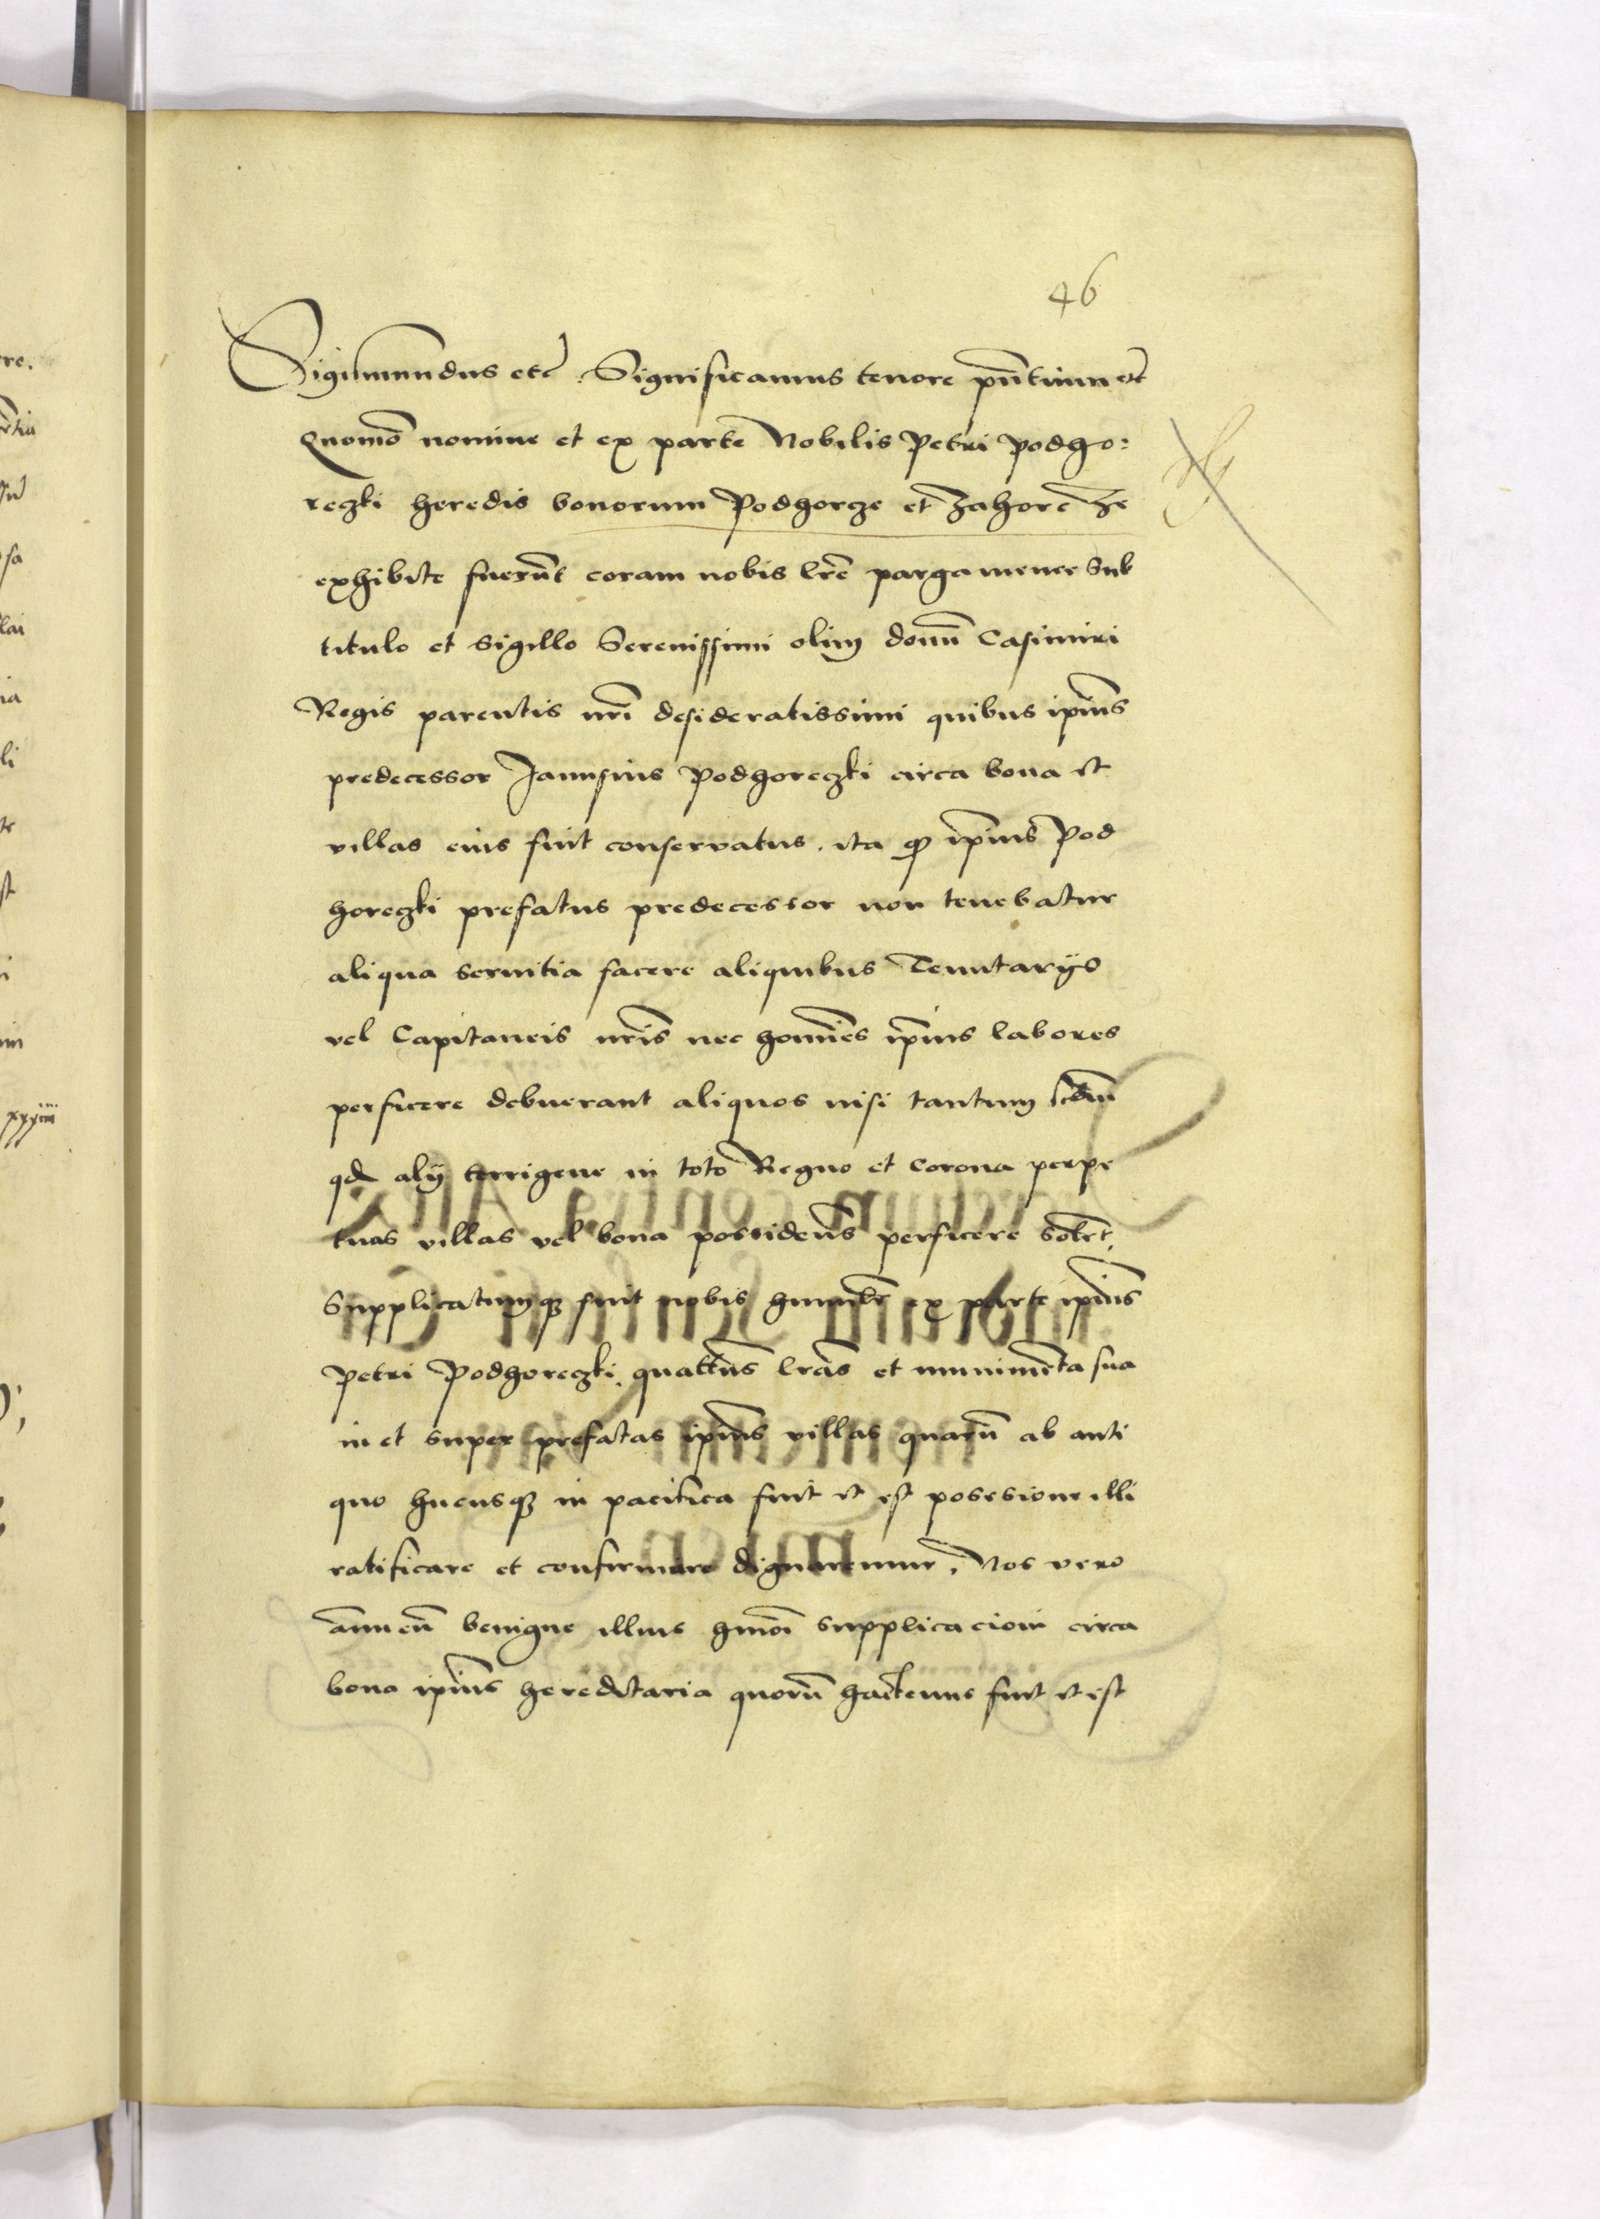 46
Sigismundus etc. Significamus tenore pn̄tium etc
Quomō nomine et ex parte Nobilis Petri Podgo:
reczki heredis bonorum Podhorcze et Zahorcze
exhibite fuerūt coram nobis lr̄e pargamenee sub
titulo et sigillo Serenissimi olim domī Casimiri
Regis parentis nr̄i desideratissimi quibus ip̄ius
predecessor Janusius Podhoreczki circa bona et
villas eius fuit conservatus. ita q̄ ip̄ius Pod
horeczki prefatus predecessor non tenebatur
aliqua servitia facere aliquibus Tenutarijs
vel Capitaneis nr̄is nec homīes ip̄ius labores
perficere debuerant aliquos nisi tantum scd̄m
qd alij terrigene in toto Regno et corona perpe
tuas villas vel bona possidentes perficere solēt.
Supplicatumq3 fuit nobis humilr̄ ex parte ip̄ius
Petri Podhoreczki. quatēus lrās et munimēta sua
in et super prefatas ip̄ius villas quarū ab anti
quo hucusq3 in pacifica fuit et est posesione illi
ratificare et confirmare dignaremur. Nos vero
annuētes benigne illius hmōi supplicacioni circa
bona ip̄ius hereditaria quorū hactenus fuit et est
xxiiii